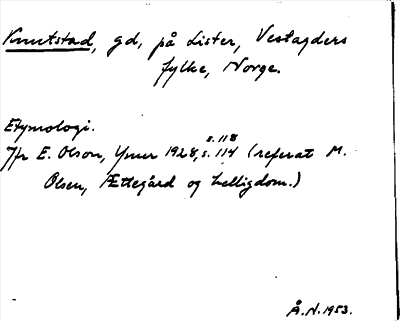 Knutstad, gd, på Lister, Vestagders
fylke, Norge.
Etymologi.
s. 118
Jfr E. Olson, Ymer 1928, s. 114 (referat M.
Olsen, Ættegård og helligdom.)
Å. N. 1953.